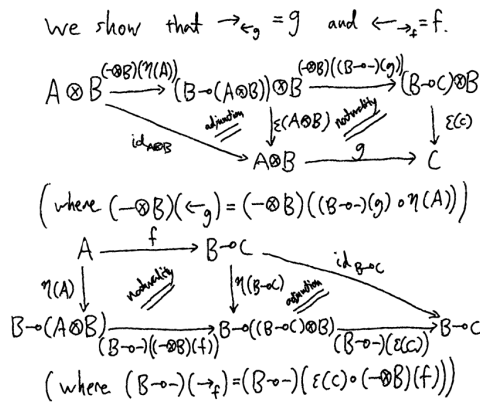 We show that →_{←_g} = g and ←_{→_f} = f.
(-⊗B)(η(A)) (-⊗B)((B⊸-)(g))
A⊗B (B⊸(A⊗B))⊗B (B⊸C)⊗B
id_{A⊗B} adjunction ε(A⊗B) naturality ε(C)
A⊗B g C
(where (-⊗B)(←_g) = (-⊗B)((B⊸-)(g)∘η(A)))
A f B⊸C
η(A) naturality η(B⊸C) adjunction id_{B⊸C}
B⊸(A⊗B) B⊸((B⊸C)⊗B) B⊸C
(B⊸-)((-⊗B)(f)) (B⊸-)(ε(C))
(where (B⊸-)(→_f) = (B⊸-)(ε(C)∘(-⊗B)(f)))